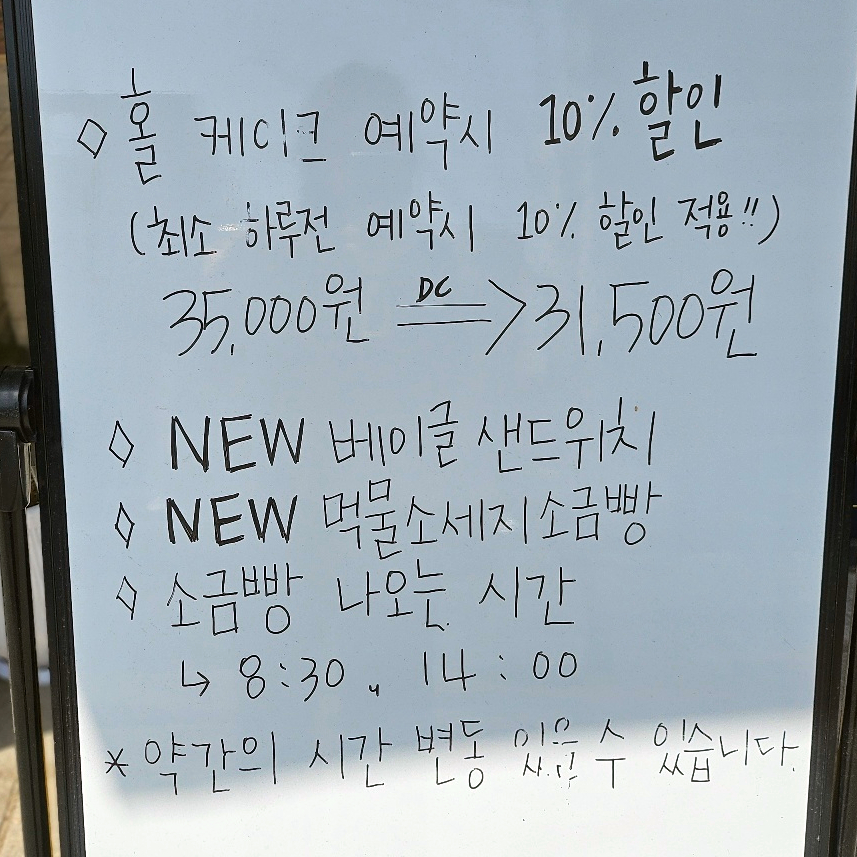 ◇ 홀 케이크 예약시 10% 할인
(최소 하루전 예약시 10% 할인 적용!!)
35,000원 DC => 31,500원
◇ NEW 베이글 샌드위치
◇ NEW 먹물소세지소금빵
◇ 소금빵 나오는 시간
↳ 8:30, 14:00
* 약간의 시간 변동 있을 수 있습니다.